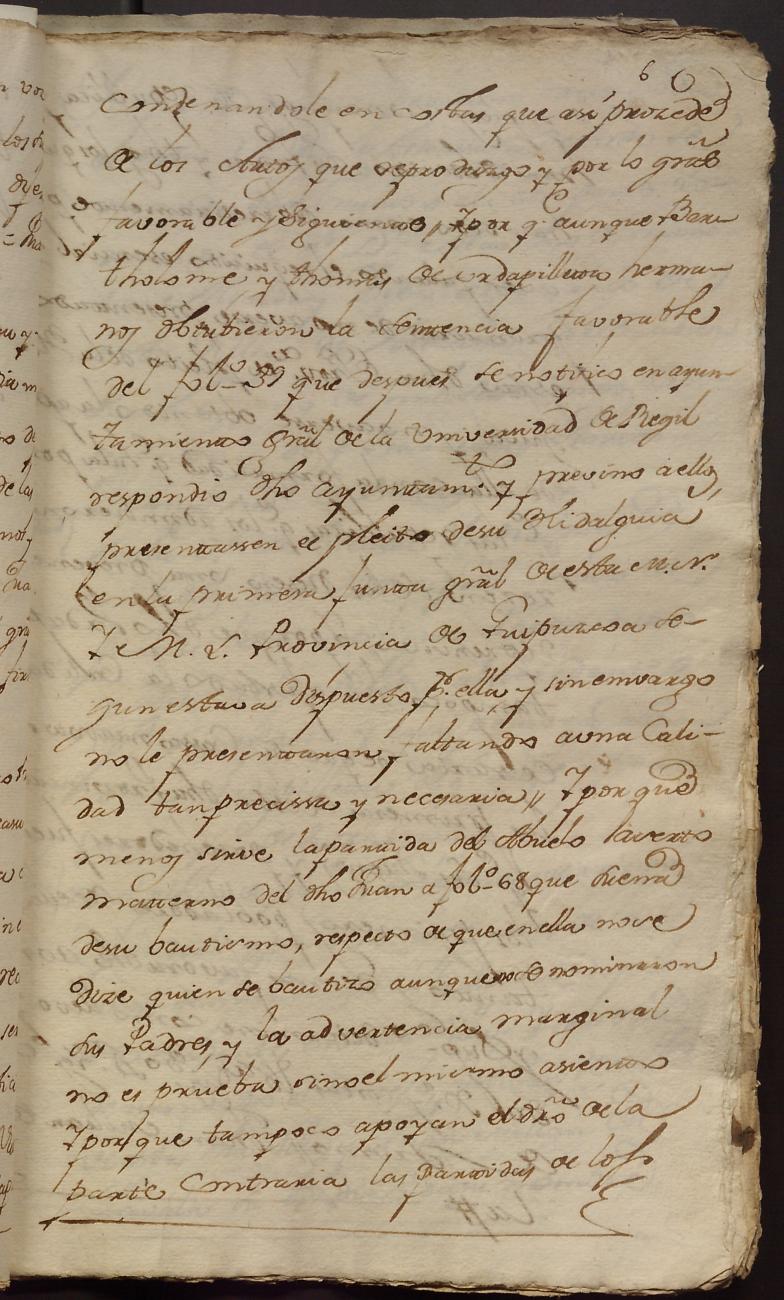 6
Condenandole en costas que asi prozede
de los Autos que reprodusgo y por lo gräl
favorable y Siguiente, Y por q aunque Bar-
tholome y thomas de urdapilleta herma-
nos obtubieron la Sentencia favorable
del fol.º 39 que despues se notifico en ayun-
tamiento gräl de la Universidad de Regil
respondio dho ayuntam.to y previno a ellos
presentassen el pleito de su Hidalguia
en la primera Junta gräl de esta M. N.
Y M. L. Provincia de Guipuzcoa se-
gun estava dispuesto Pr. ella, y sin embargo
no le presentaron, faltando a una Cali-
dad tan precissa y necesaria,, Y por que
menos sirve la partida del Abuelo
materno del dho Juan a fol.º 68 que suena
de su bautismo, respecto de que en ella no se
dize quien se bautizo aunque se nominaron
sus Padres, y la advertencia marginal
no es prueba sino el mismo asiento
Y porque tampoco apoyan el dro de la
parte Contraria las Partidas de los